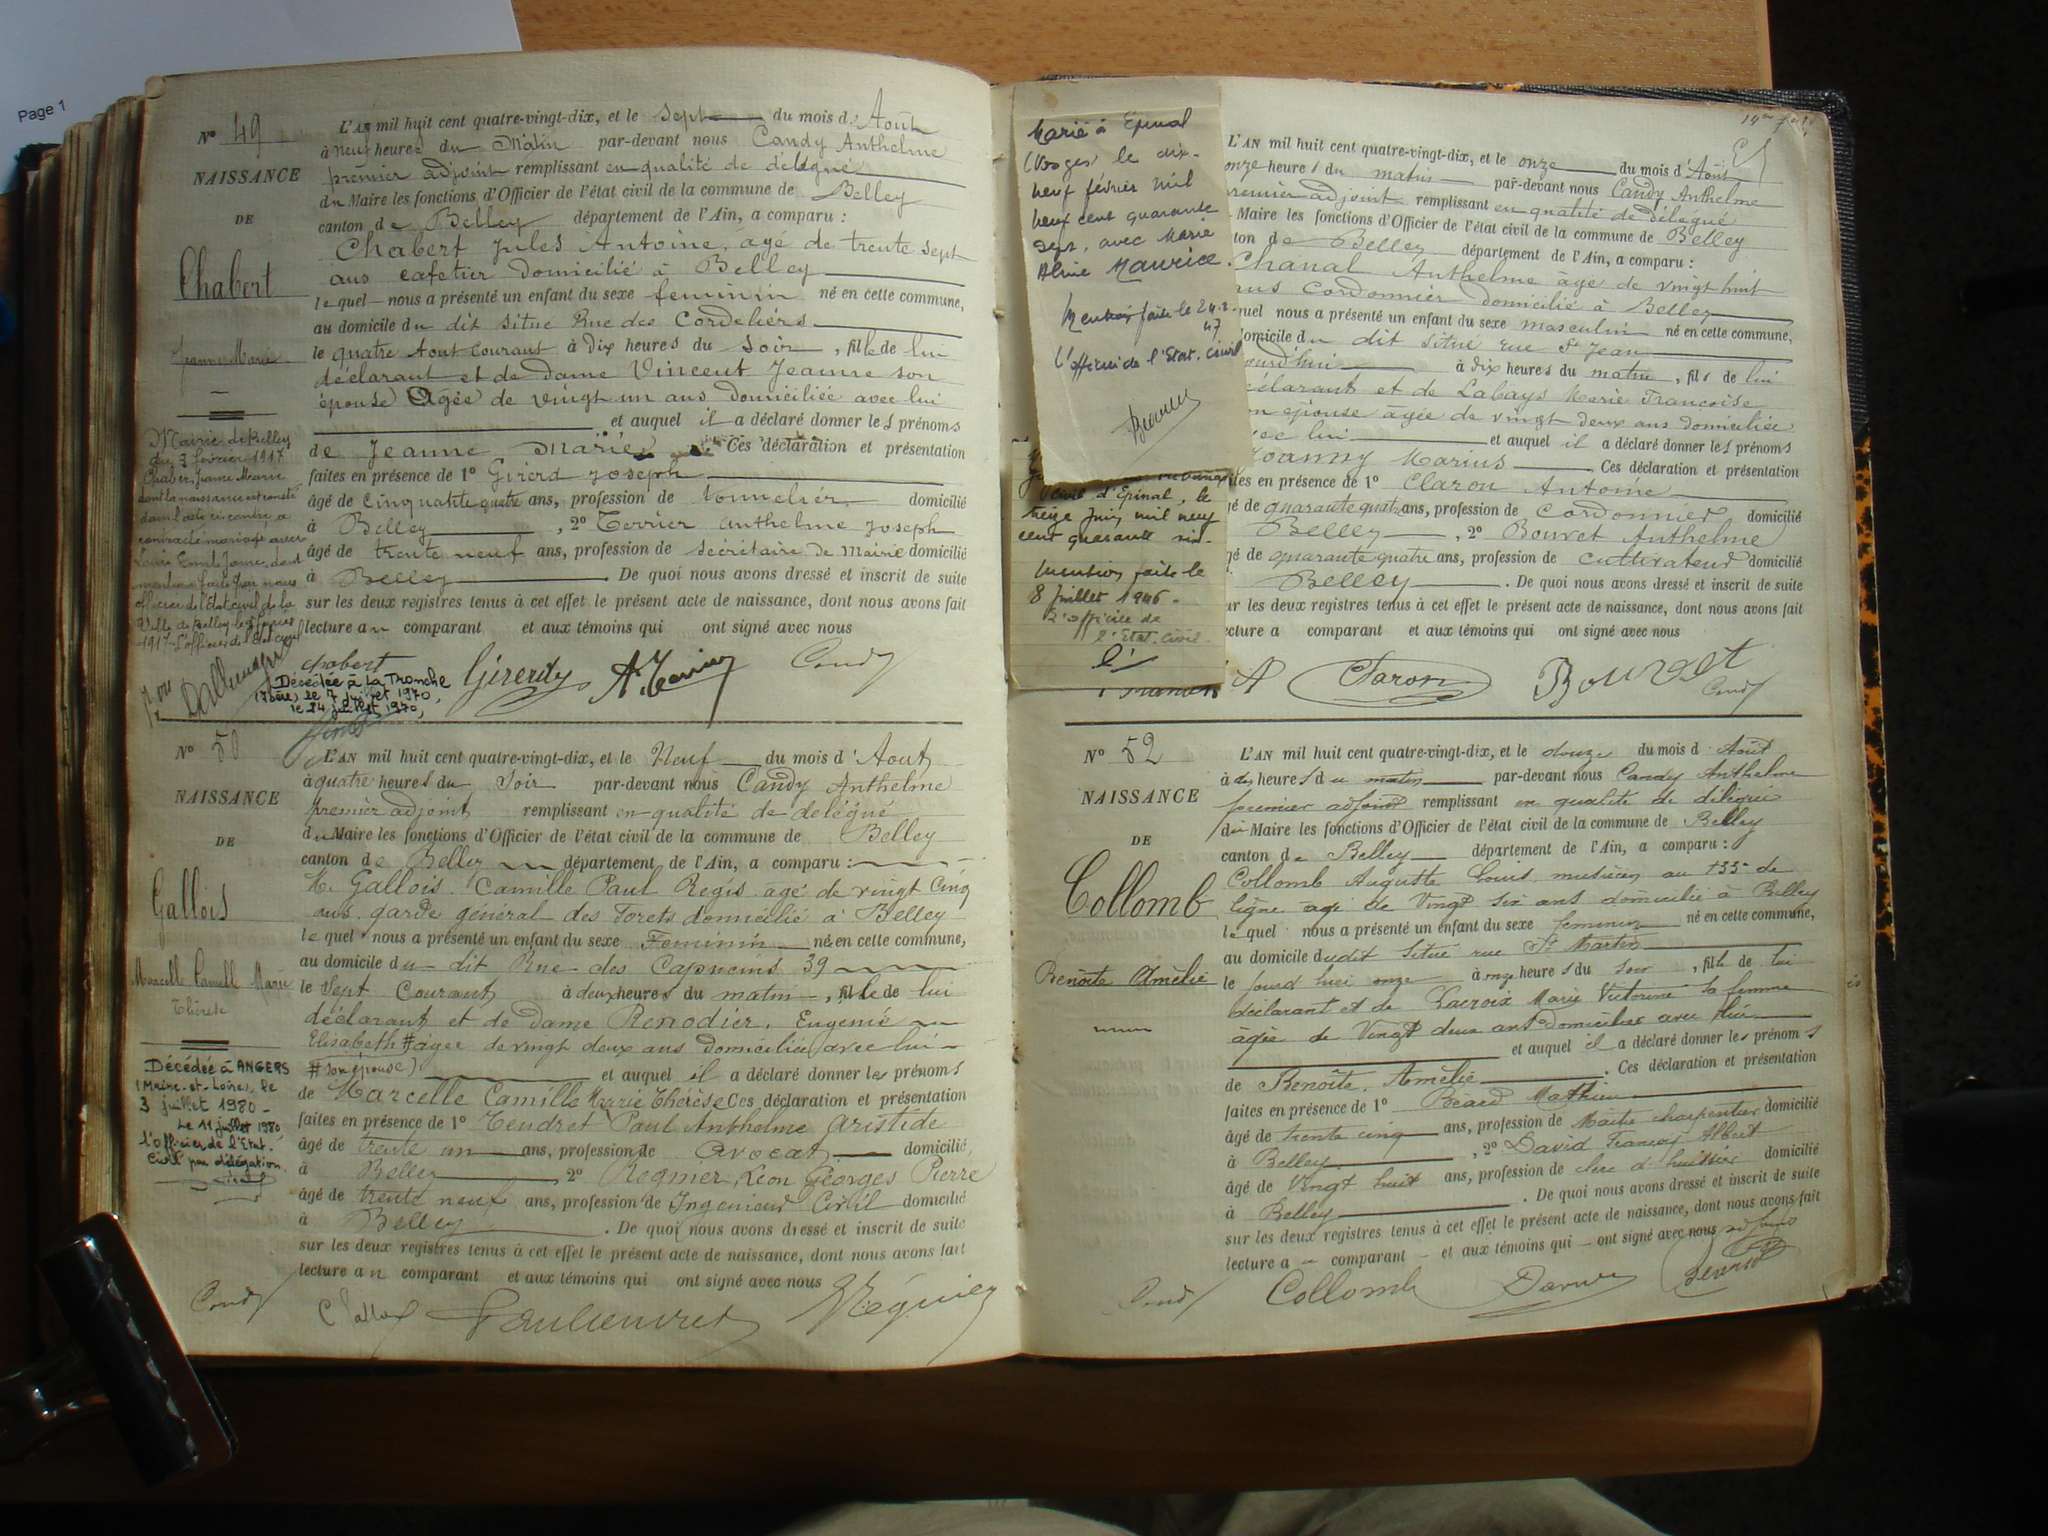 Page 1
N° 49
NAISSANCE
DE
Chabert
Jeanne Marie
L'AN mil huit cent quatre-vingt-dix, et le sept du mois d'Août
à neuf heures du Matin par-devant nous Candy Anthelme
premier adjoint remplissant en qualité de délégué
du Maire les fonctions d'Officier de l'état civil de la commune de Belley
canton de Belley département de l'Ain, a comparu :
Chabert Jules Antoine, âgé de trente sept
ans cafetier domicilié à Belley
lequel nous a présenté un enfant du sexe feminin né en cette commune,
au domicile du dit situé Rue des Cordeliers
le quatre Aout courant à dix heures du soir, fille de lui
déclarant et de Dame Vincent Jeanne son
épouse Agée de vingt un ans domiciliée avec lui
et auquel il a déclaré donner les prénoms
de Jeanne Marie Ces déclaration et présentation
faites en présence de 1° Girerd Joseph
âgé de cinquante quatre ans, profession de tonnelier domicilié
à Belley, 2° Terrier Anthelme Joseph
âgé de trente neuf ans, profession de secrétaire de Mairie domicilié
à Belley. De quoi nous avons dressé et inscrit de suite
sur les deux registres tenus à cet effet le présent acte de naissance, dont nous avons fait
lecture au comparant et aux témoins qui ont signé avec nous
Mairie de Belley
du 3 février 1917
Chabert Jeanne Marie
dont la naissance est constatée
dans l'acte ci contre, a
contracté mariage avec
Louis Emile dont
mention faite par nous
officier de l'état civil de la
Ville de Belley le février
1917 L'officier de l'Etat civil
Chabert Girerdy A. Terrier Candy
Décédée à La Tronche
(Isère) le 7 juillet 1970,
le 24 juillet 1970,
N° 50
NAISSANCE
DE
Gallois
Marcelle Camille Marie
Thérèse
L'AN mil huit cent quatre-vingt-dix, et le Neuf du mois d'Aout
à quatre heures du Soir par-devant nous Candy Anthelme
premier adjoint remplissant en qualité de delégué
du Maire les fonctions d'Officier de l'état civil de la commune de Belley
canton de Belley département de l'Ain, a comparu :
M. Gallois Camille Paul Regis agé de vingt cinq
ans garde général des Forets domicilié à Belley
lequel nous a présenté un enfant du sexe Feminin née en cette commune,
au domicile du dit Rue des Capucins 39
le sept Courant à deux heures du matin, fille de lui
déclarant et de Dame Renodier, Eugenie
Elisabeth # agée de vingt deux ans domiciliée avec lui
# son épouse) et auquel il a déclaré donner les prénoms
de Marcelle Camille Marie Thérèse Ces déclaration et présentation
faites en présence de 1° Tendret Paul Anthelme Aristide
âgé de trente un ans, profession de Avocat domicilié,
à Belley 2° Regnier, Léon Georges Pierre
âgé de trente neuf ans, profession de Ingenieur Civil domicilié
à Belley. De quoi nous avons dressé et inscrit de suite
sur les deux registres tenus à cet effet le présent acte de naissance, dont nous avons fait
lecture au comparant et aux témoins qui ont signé avec nous
Décédée à ANGERS
(Maine-et-Loire), le
3 juillet 1980 -
Le 11 juillet 1980,
l'officier de l'Etat
Civil par délégation.
Candy C Gallois Paul Tendret Régnier
Marié à Epinal
(Vosges) le dix-
neuf février mil
neuf cent quarante
sept, avec Marie
Aline Maurice.
Mention faite le 24.2.
47
L'officier de l'Etat. Civil
civil d'Epinal, le
treize Juin mil neuf
cent quarante six.
Mention faite le
8 Juillet 1946 -
L'officier de
l'Etat. Civil
L'AN mil huit cent quatre-vingt-dix, et le onze du mois d'Août
onze heures du matin par-devant nous Candy Anthelme
premier adjoint remplissant en qualité de délégué
Maire les fonctions d'Officier de l'état civil de la commune de Belley
ton de Belley département de l'Ain, a comparu :
Chanal Anthelme âgé de vingt huit
ans Cordonnier domicilié à Belley
quel nous a présenté un enfant du sexe masculin né en cette commune,
domicile du dit situé rue St Jean
ourd'hui à dix heures du matin, fils de lui
déclarant et de Labays Marie Francoise
on épouse âgée de vingt deux ans domiciliée
avec lui et auquel il a déclaré donner les prénoms
Joanny Marius Ces déclaration et présentation
ites en présence de 1° Claron Antoine
gé de quarante quatre ans, profession de cordonnier domicilié
Belley, 2° Bouvet Anthelme
gé de quarante quatre ans, profession de cultivateur domicilié
Belley. De quoi nous avons dressé et inscrit de suite
ur les deux registres tenus à cet effet le présent acte de naissance, dont nous avons fait
ecture a comparant et aux témoins qui ont signé avec nous
Claron Bouvet Candy
N° 52
NAISSANCE
DE
Collomb
Benoîte Amélie
L'AN mil huit cent quatre-vingt-dix, et le douze du mois d'Août
à dix heures du matin par-devant nous Candy Anthelme
premier adjoint remplissant en qualité de délégué
du Maire les fonctions d'Officier de l'état civil de la commune de Belley
canton de Belley département de l'Ain, a comparu :
Collomb Auguste Louis musicien au 133 de
ligne agé de Vingt six ans domicilié à Belley
lequel nous a présenté un enfant du sexe feminin né en cette commune,
au domicile dudit Situé rue St Martin
le jourd hier onze à onze heures du soir, fille de lui
déclarant et de Lacroix Marie Victorine sa femme
âgée de Vingt deux ans domiciliée avec lui
et auquel il a déclaré donner les prénoms
de Benoîte, Amélie. Ces déclaration et présentation
faites en présence de 1° Béard Mathieu
âgé de trente cinq ans, profession de Maître charpentier domicilié
à Belley, 2° David François Albert
âgé de Vingt huit ans, profession de clerc d'huissier domicilié
à Belley. De quoi nous avons dressé et inscrit de suite
sur les deux registres tenus à cet effet le présent acte de naissance, dont nous avons fait
lecture au comparant et aux témoins qui ont signé avec nous
Candy Collomb David